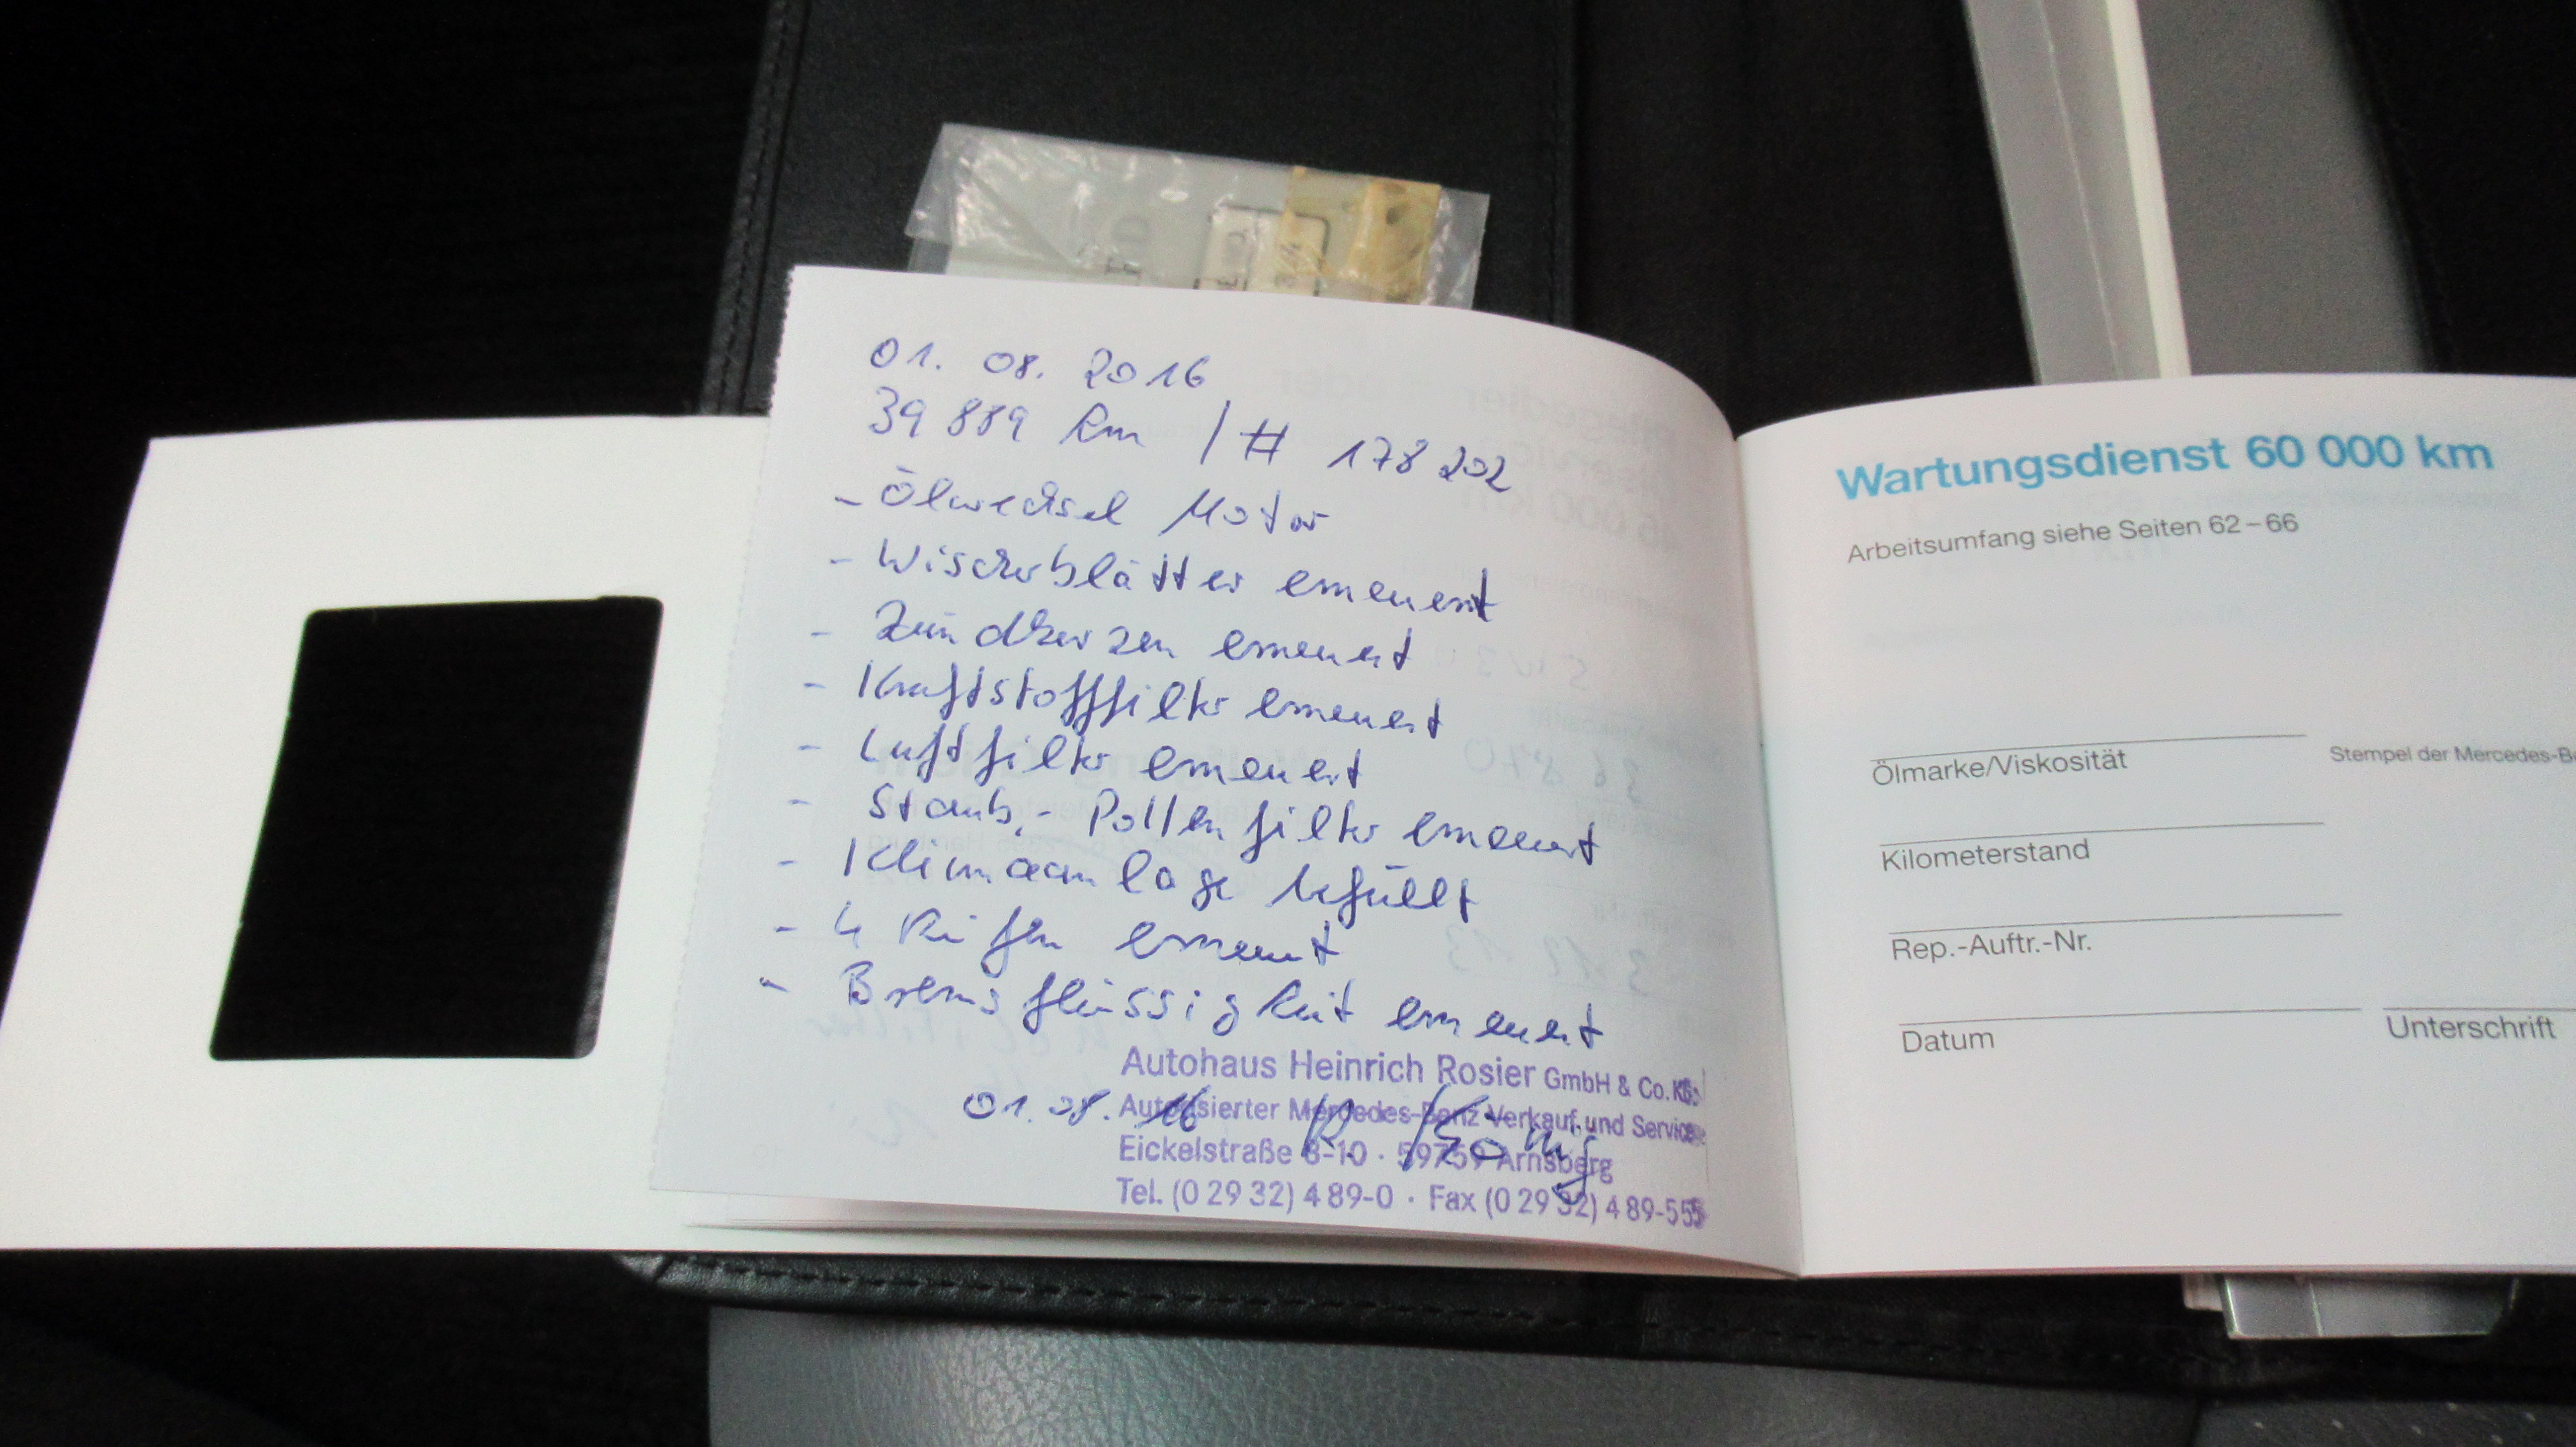 01. 08. 2016
39 889 km / # 178 202
- Ölwechsel Motor
- Wischerblätter erneuert
- Zündkerzen erneuert
- Kraftstofffilter erneuert
- Luftfilter erneuert
- Staub,- Pollenfilter erneuert
- Klimaanlage befüllt
- 4 Reifen erneuert
- Bremsflüssigkeit erneuert
Autohaus Heinrich Rosier GmbH & Co. KG
01.08.16
Autorisierter Mercedes-Benz Verkauf und Service
Eickelstraße 8-10 · 59759 Arnsberg
Tel. (0 29 32) 4 89-0 · Fax (0 29 32) 4 89-555
Wartungsdienst 60 000 km
Arbeitsumfang siehe Seiten 62–66
Ölmarke/Viskosität
Stempel der Mercedes-Be
Kilometerstand
Rep.-Auftr.-Nr.
Datum
Unterschrift